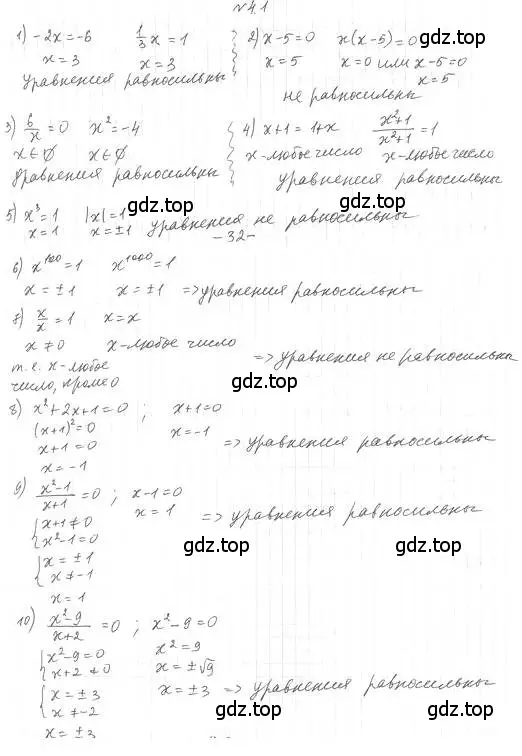 №4.1
1) -2x=-6   1/3 x = 1
x=3   x=3
Уравнения равносильны
2) x-5=0   x(x-5)=0
x=5   x=0 или x-5=0
x=5
не равносильны
3) 6/x = 0   x²=-4
x∈∅   x∈∅
Уравнения равносильны
4) x+1=1+x   (x²+1)/(x²+1) = 1
x-любое число   x-любое число
Уравнения равносильны
5) x³=1   |x|=1
x=1   x=±1   уравнения не равносильны
-32-
gdz.top
gdz.top
6) x¹⁰⁰=1   x¹⁰⁰⁰=1
x=±1   x=±1   => уравнения равносильны
7) x/x = 1   x=x
x≠0   x-любое число
т.е. x-любое
число, кроме 0
=> уравнения не равносильны
gdz.top
8) x²+2x+1=0 ;   x+1=0
(x+1)²=0   x=-1
x+1=0   => уравнения равносильны
x=-1
gdz.top
9) (x²-1)/(x+1) = 0 ;   x-1=0
{x+1≠0   x=1   => уравнения равносильны
x²-1=0
{x=±1
x≠-1
x=1
gdz.top
gdz.top
10) (x²-9)/(x+2) = 0 ;   x²-9=0
{x²-9=0   x²=9
x+2≠0   x=±√9
{x=±3   x=±3   => уравнения равносильны
x≠-2
x=±3
gdz.top
gdz.top